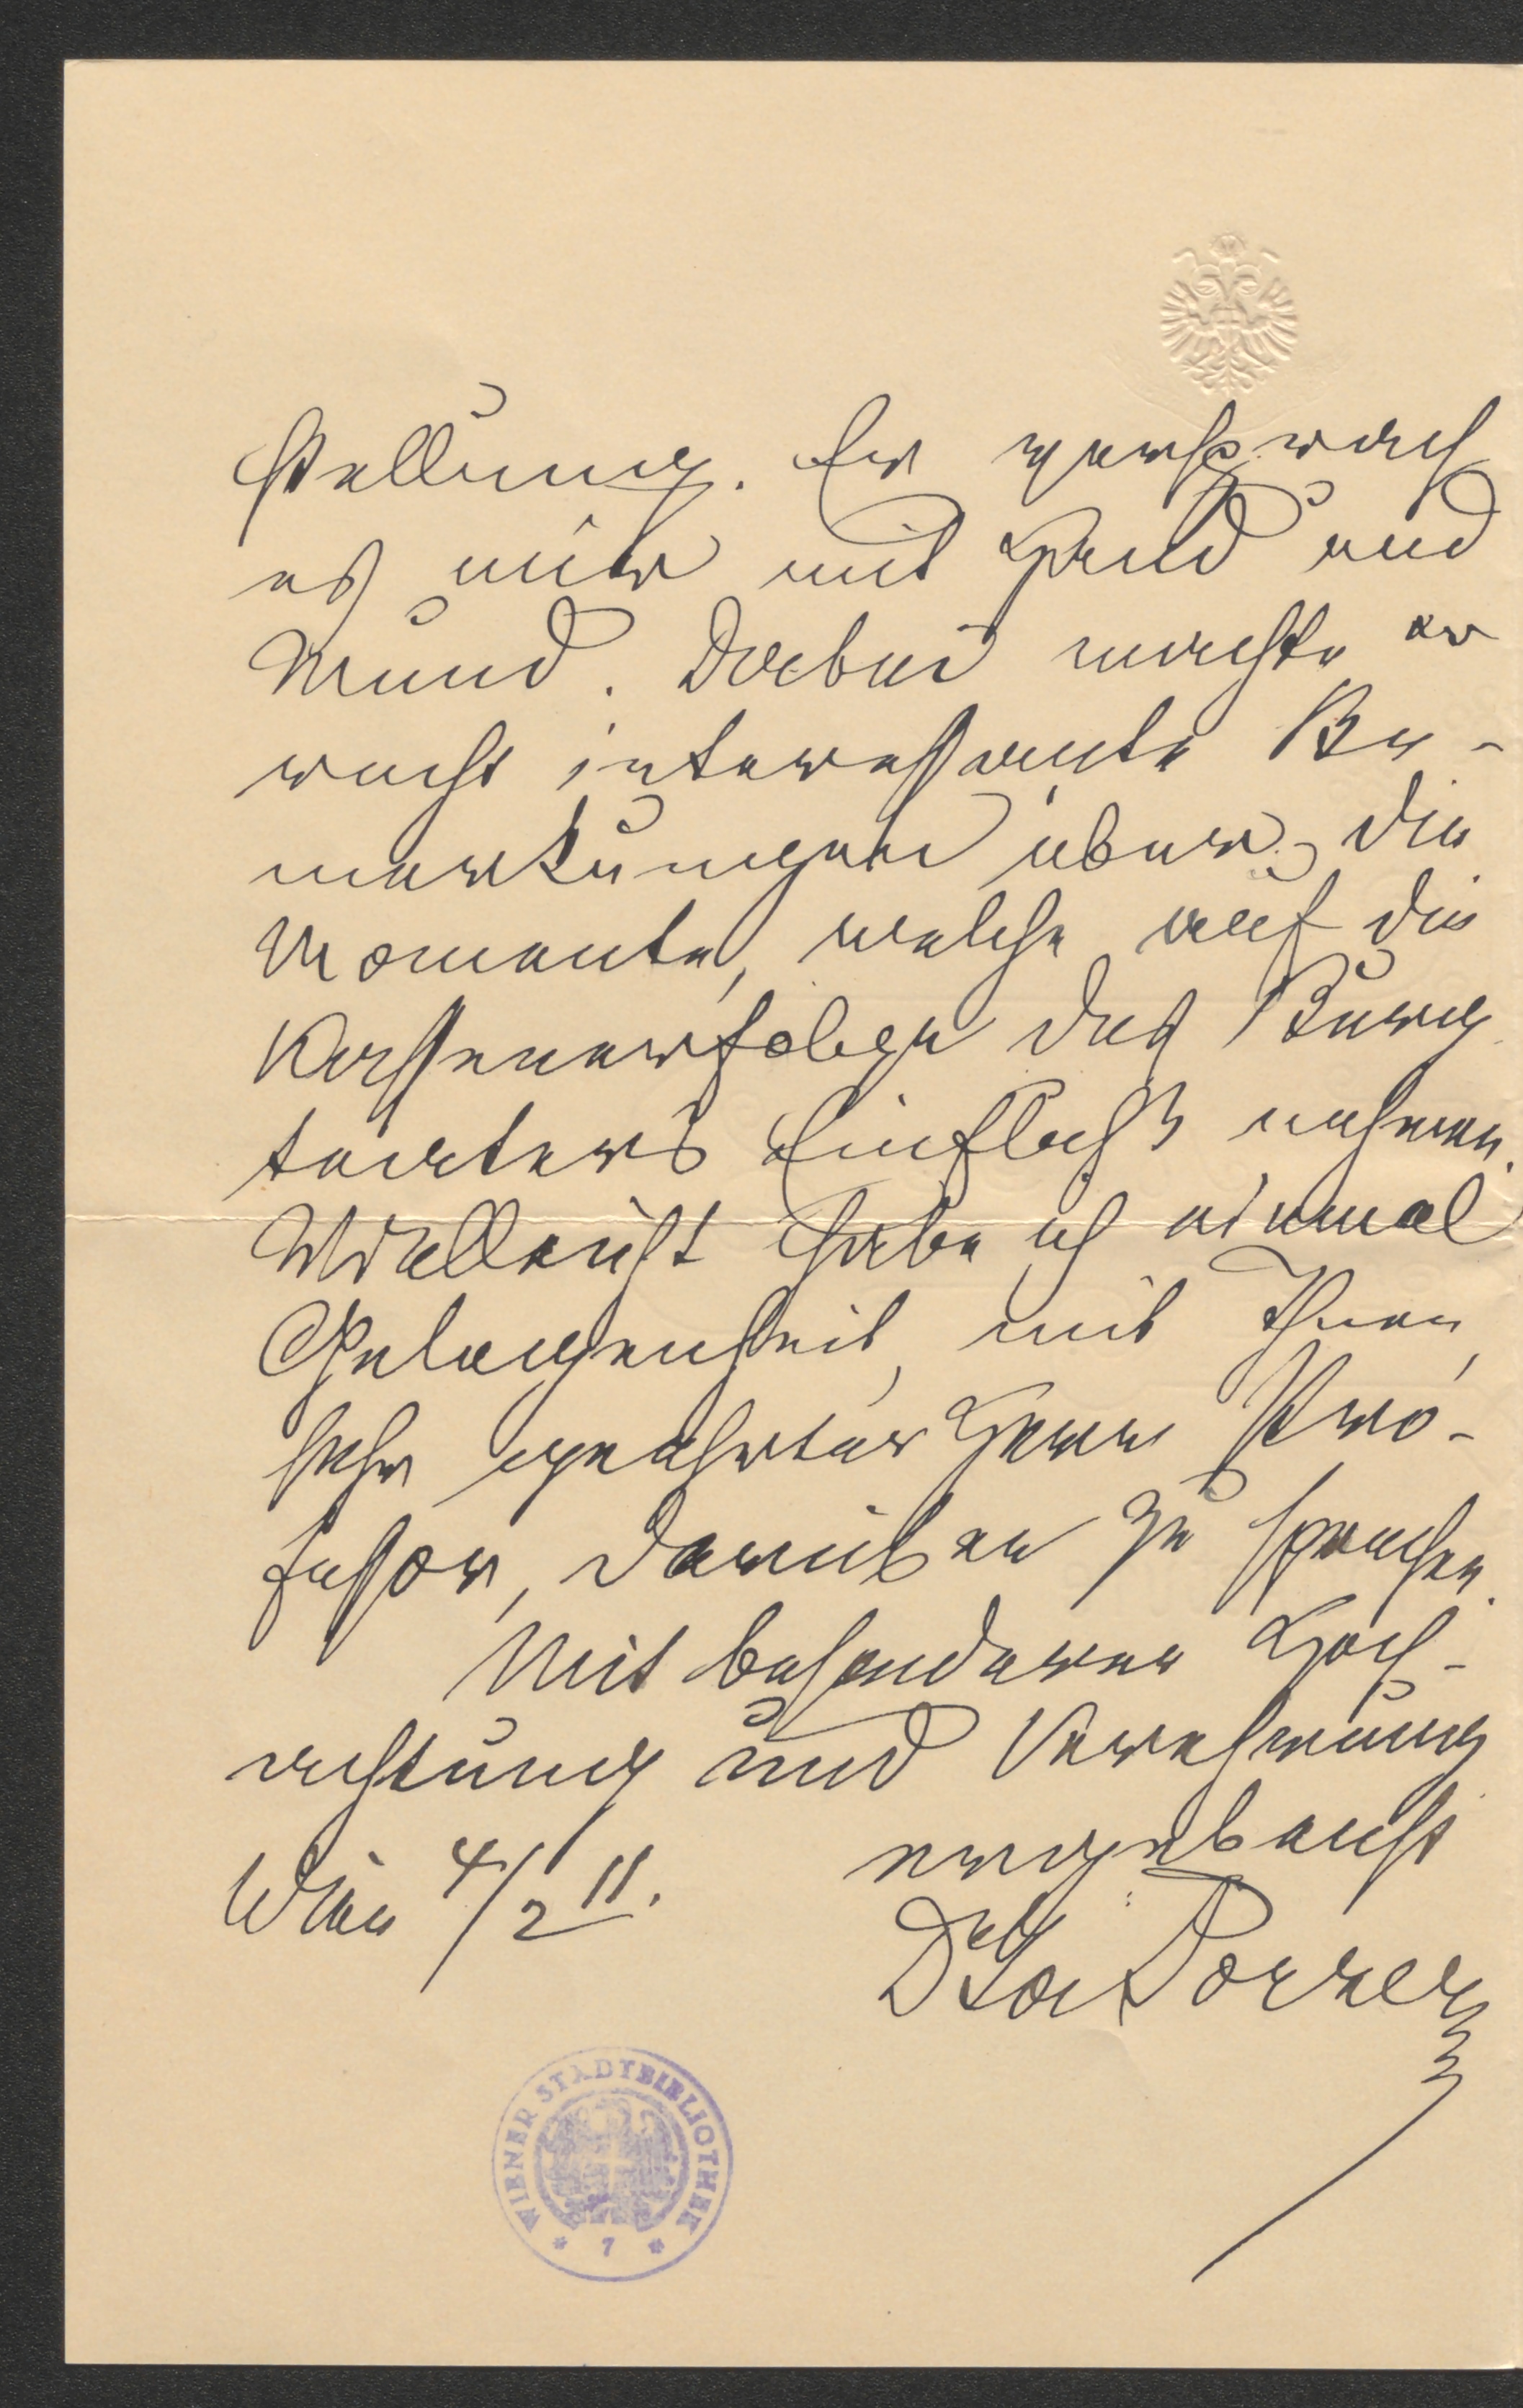 stellung. Er versprach
es mir mit Hand und
Mund. Dabei machte er
recht interessante Be-
merkungen über die
Momente, welche auf die
Kassenerfolge des Burg
teaters Einfluß nehmen.
Vielleicht habe ich einmal
Gelegenheit, mit Ihnen,
sehr geehrter Herr Pro-
fessor, darüber zu sprechen.
Mit besonderer Hoch-
achtung und Verehrung
Wien 4/2 11.
ergebenst
WIENER STADTBIBLIOTHEK
* 7 *